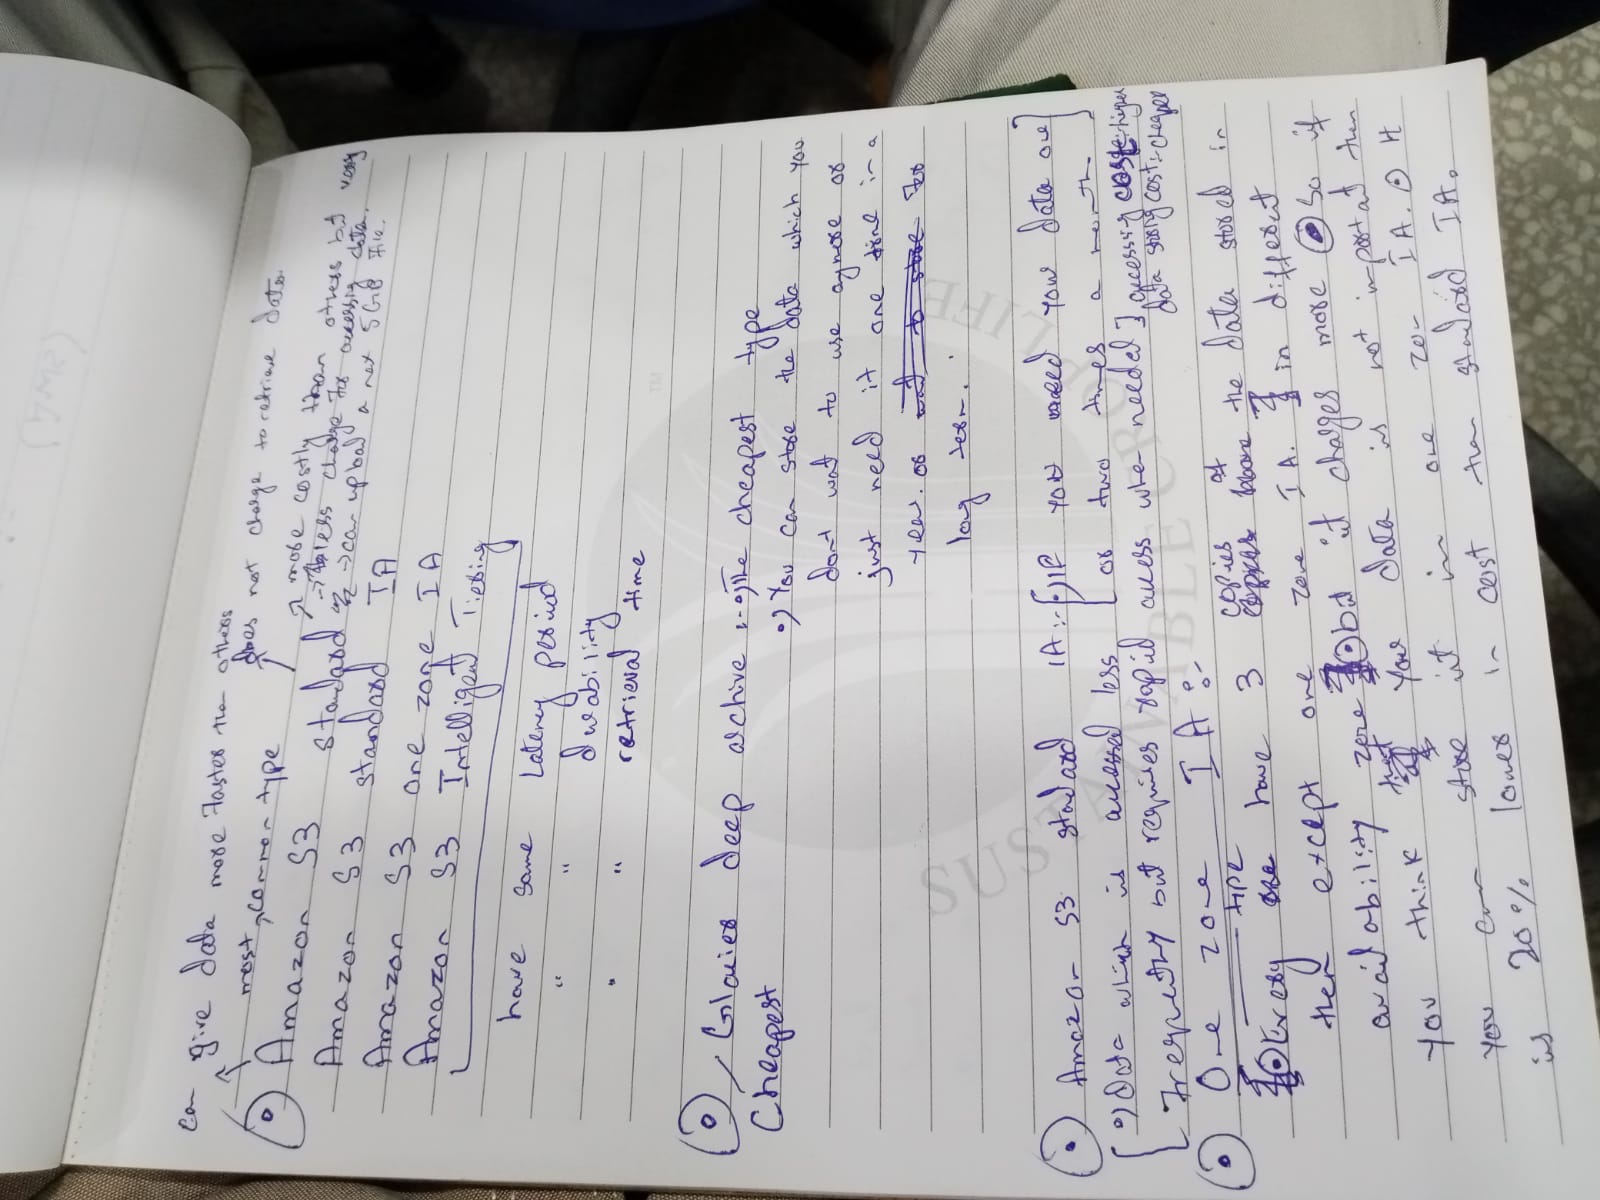 can give data more faster than others
most common type
does not charge to retrieve data
Amazon S3 standard → more costly than others but very
→ less charge for accessing data.
→ can upload a max 5GB file.
Amazon S3 standard IA
Amazon S3 one zone IA
Amazon S3 Intelligent Tiering
have same latency period
" " durability
" " retrieval time
Glacier deep archive :- •) The cheapest type
Cheapest
•) You can store the data which you
dont want to use anymore or
just need it one time in a
year. or want to store for
long term.
Amazon S3 standard IA :- [•) If you need your data one
or two times a month]
•) Data which is accessed less
[frequently but requires rapid access when needed] accessing cost :- higher
data storing cost :- cheaper
One zone IA :-
Every type have 3 copies of the data stored in
them except one zone IA. in different
availability zone • but it charges more • So if
you think that your data is not important then
you can store it in one zon IA. • It
is 20% lower in cost than standard IA.
SUSTAINABLE CROP OF LIFE
TM